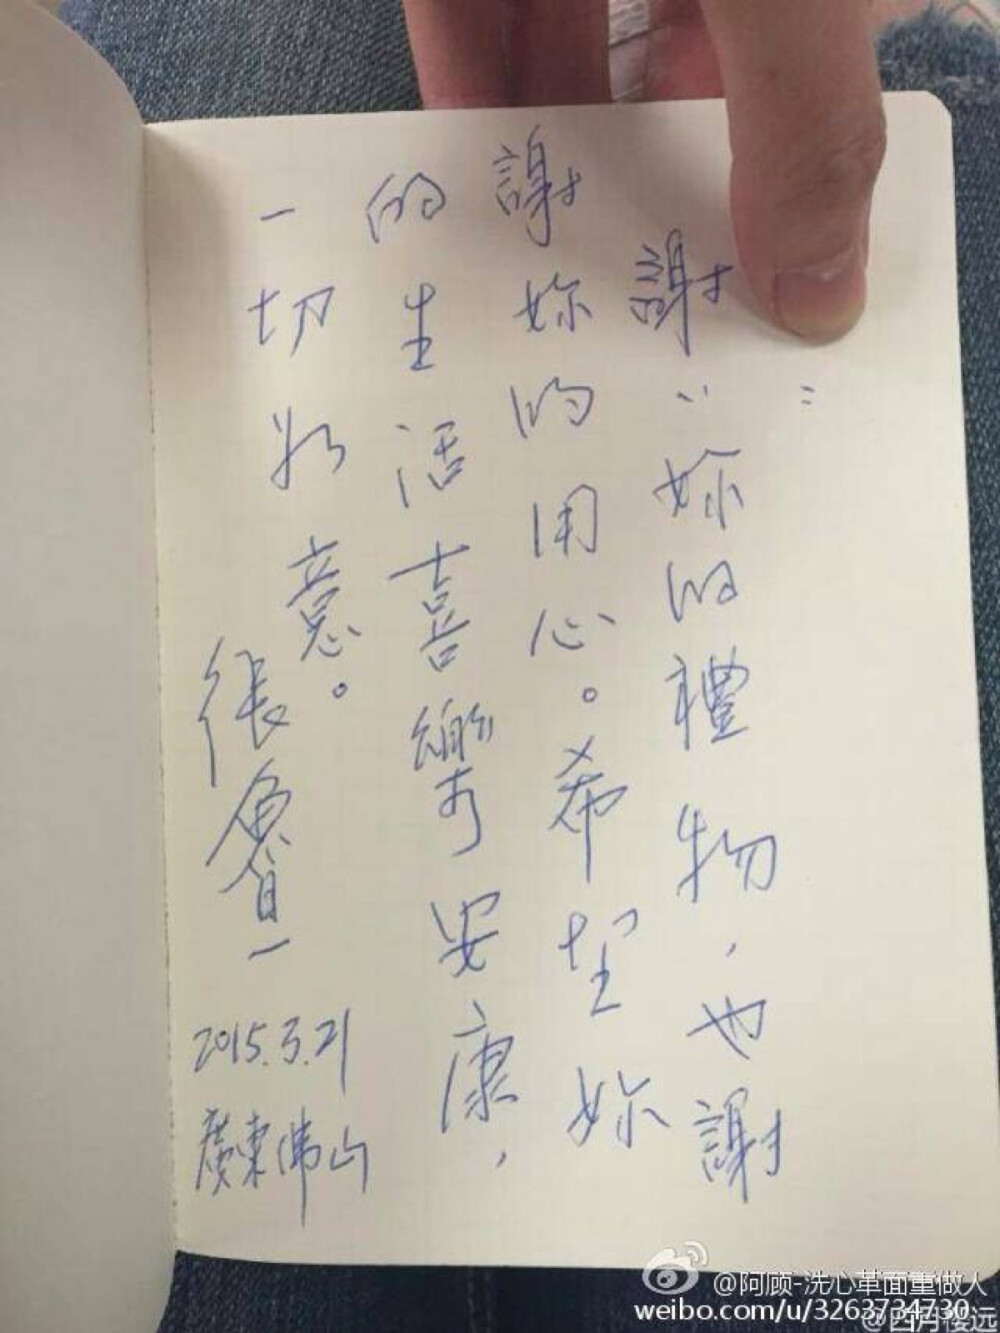 ：
謝謝妳的禮物，也謝
謝妳的用心。希望妳
的生活喜樂安康，
一切如意。
張會一
2015.3.21
廣東佛山
@阿顾-洗心革面重做人
weibo.com/u/3263734730